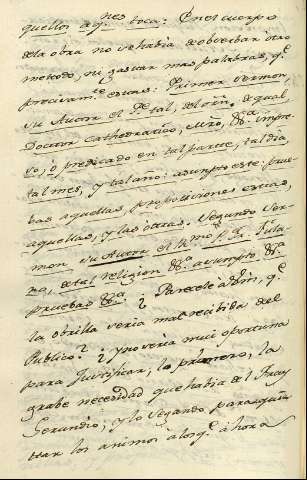 quellos a q.nes toca: En el cuerpo
de la obra no se había de observar otro
metodo, ni gastar mas palabras, q.e
precisam.te estas: Primer sermon,
su Autor el P.e tal, de la Rn. de qual
Doctor Cathedratico, Mro, &.a impre-
so, ó predicado en tal parte, tal dia,
tal mes, y tal año: asunpto este: prue-
bas aquellas, proposiciones estas,
aquellas, y las otras. Segundo Ser-
mon su Autor el R.mo P. Fr. Fula-
no, de tal religion &.a asunpto &.a
pruebas &.a ¿Parecele à Vm, q.e
la obrilla seria mal recibida del
Publico? ¿, y no seria mui oportuna
para Justificar, lo primero, la
grabe necesidad que habia del Fray
Gerundio; y lo segundo, para aquie-
tar los animos à los q.e àhora